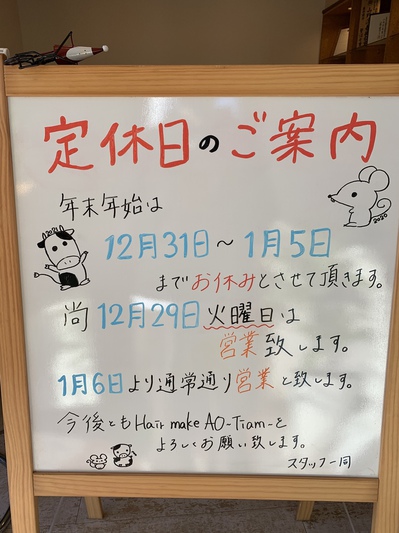 定休日のご案内
年末年始は
2020
2021
12月31日～1月5日
までお休みとさせて頂きます。
尚12月29日火曜日は
営業致します。
1月6日より通常通り営業と致します。
今後ともHair make AO-Tiam-を
よろしくお願い致します。
スタッフ一同